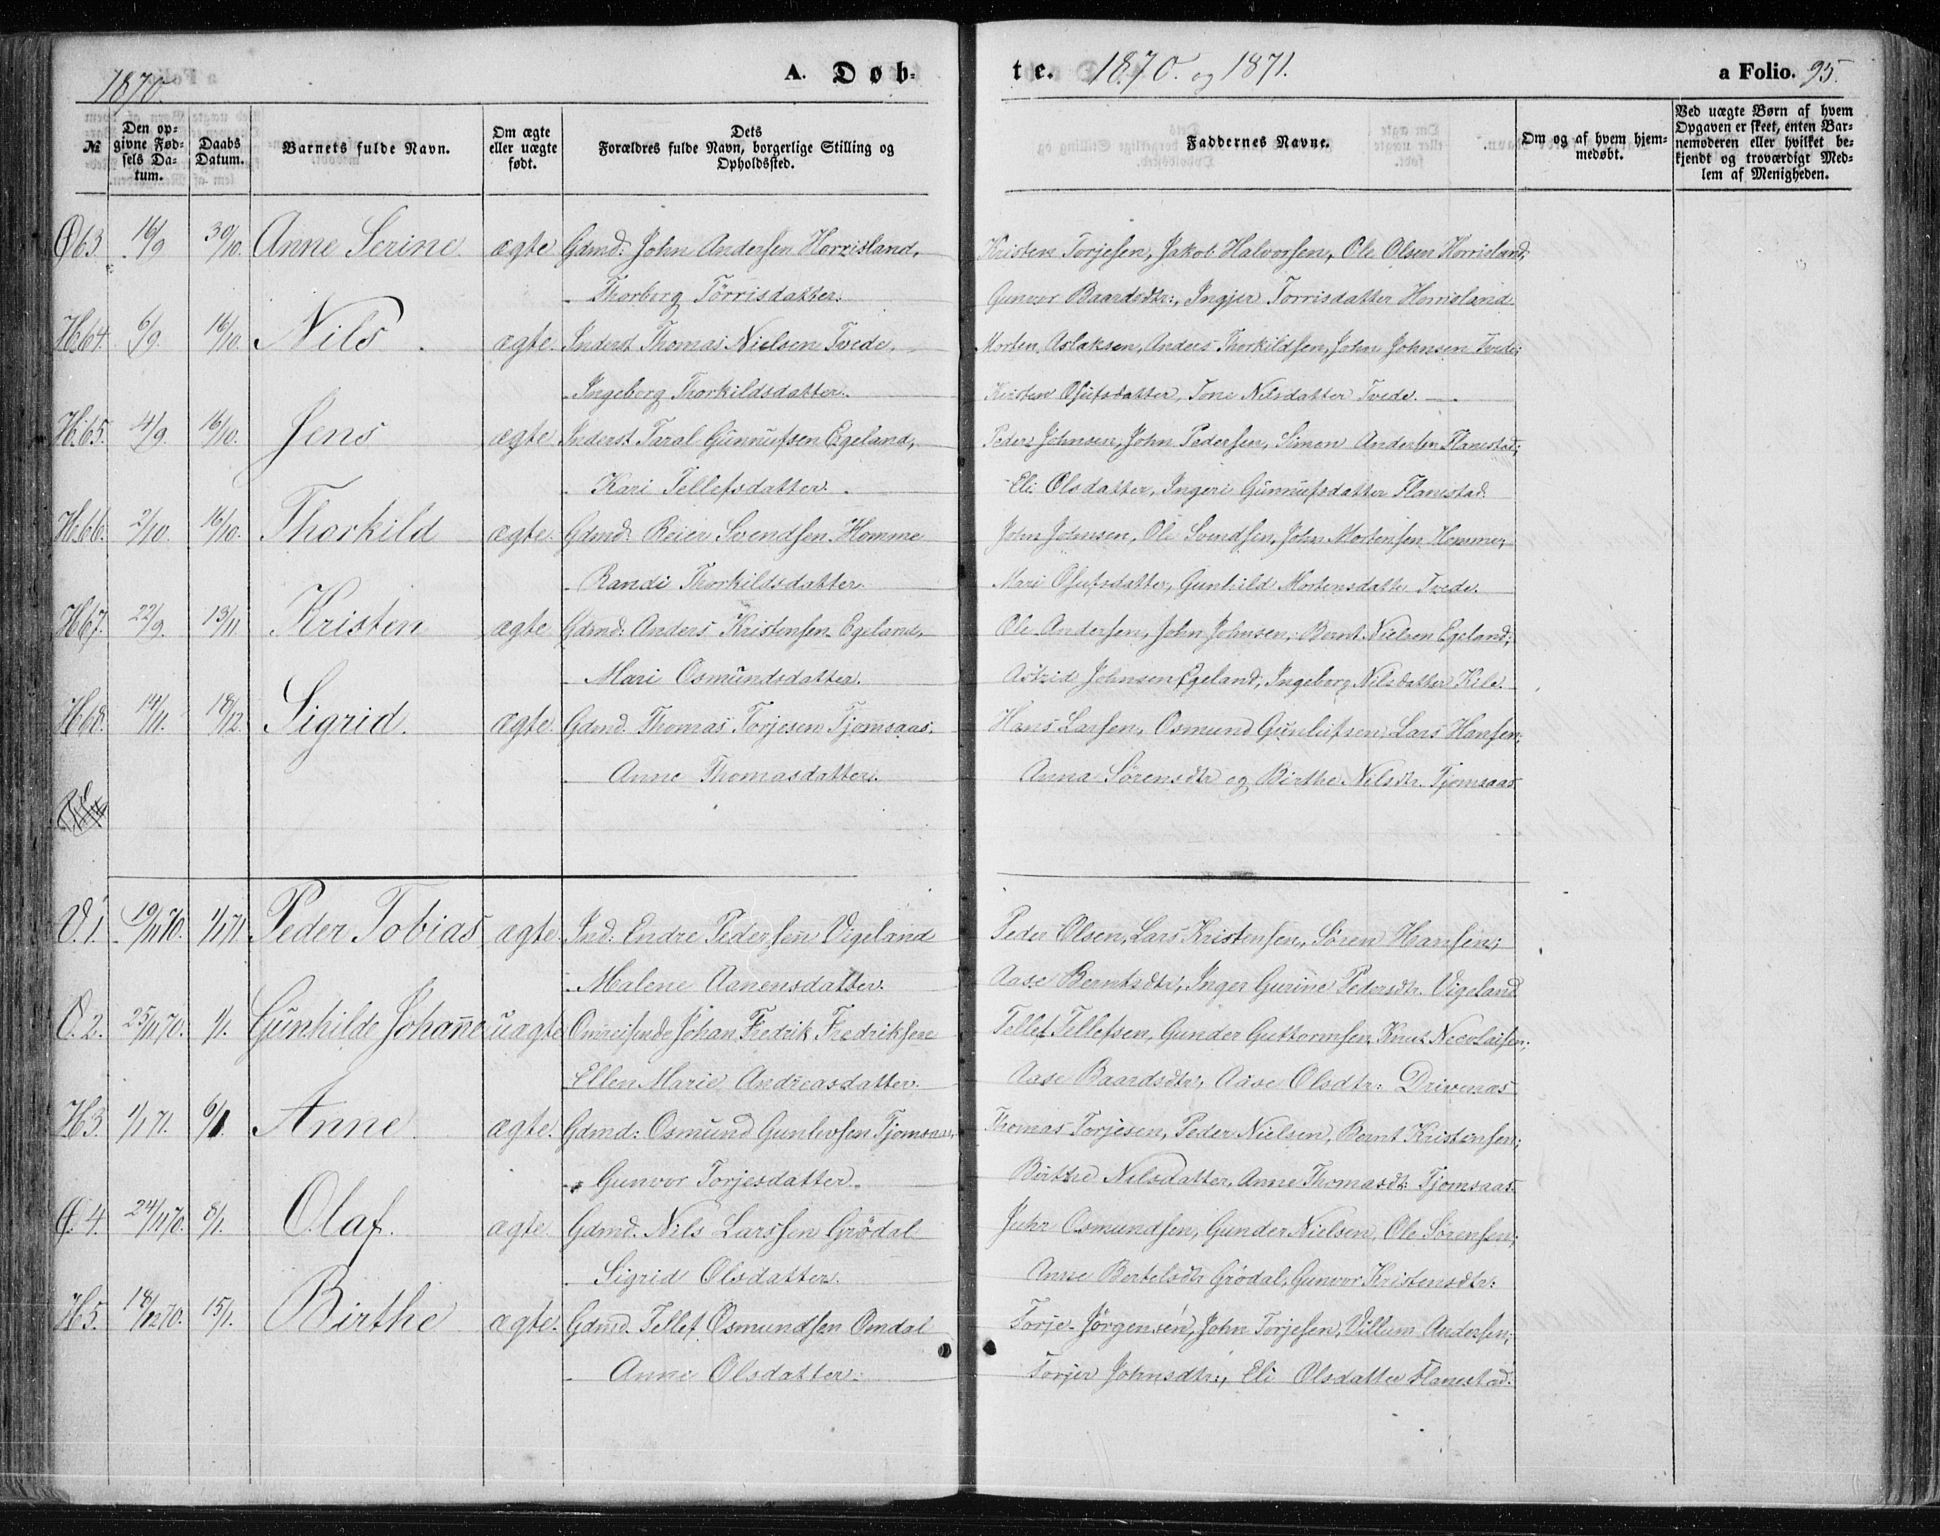 1870.
A. Døb-
te. 1870. og 1871.
a Folio. 95.
№
Den opgivne Fødsels Datum.
Daabs Datum.
Barnets fulde Navn.
Om ægte eller uægte født.
Dets Forældres fulde Navn, borgerlige Stilling og Opholdssted.
Faddernes Navne.
Om og af hvem hjemmedøbt.
Ved uægte Børn af hvem Opgaven er skeet, enten Barnemoderen eller hvilket bekjendt og troværdigt Medlem af Menigheden.
Ø63. 16/9 30/10. Anne Serine. ægte Gdmd: John Andersen Horrisland, Kristen Torjesen, Jakob Halvorsen, Ole Olsen Horrisland,
Thorborg Tørrisdatter. Gunvor Baardsdtr:, Ingjer Torrisdatter Horrisland
H.64. 6/9. 16/10. Nils ægte. Inderst Thomas Nielsen Tvede. Morten Aslaksen, Anders Thorkildsen, John Johnsen Tvede;
Ingeborg Thorkildsdatter. Kirsten Osufsdatter, Tone Nilsdatter Tvede.
H.65. 4/9. 16/10. Jens ægte Inderst Taral Gunnufsen Egeland, Peder Johnsen, John Pedersen, Simon Andersen Flanestad;
Kari Tellefsdatter. Eli Olsdatter, Ingeri Gunnufsdatter Flanestad
H.66. 2/10. 16/10. Thorkild ægte. Gdmd: Reier Svendsen Homme John Johnsen, Ole Svendsen, John Mortensen Homme,
Randi Thorkildsdatter. Mari Osufsdatter, Gunhild Mortensdatter Tvede.
H.67. 22/9. 13/11 Kristen ægte Gdmd: Anders Kristensen Egeland, Ole Andersen, John Johnsen, Bernt Nielsen Egeland;
Mari Osmundsdatter. Astrid Johnsen Egeland, Ingeborg Nilsdatter Kile.
H.68. 14/11. 18/12. Sigrid. ægte. Gdmd. Thomas Torjesen Tjomsaas. Hans Larsen, Osmund Gunlufsen, Lars Hansen;
Anne Thomasdatter. Anna Sørensdtr og Birthe Nilsdtr. Tjomsaas
V.1. 19/11 70. 1/1 71. Peder Tobias ægte. Ind: Endre Pedersen Vigeland Peder Olsen, Lars Kristensen, Søren Hansen;
Malene Aanensdatter. Aase Berntsdtr, Inger Gurine Pedersdtr. Vigeland
Ø.2. 25/11 70. 1/1. Gunhilde Johanne uægte Omreisende Johan Fredrik Fredriksen Tellef Tellefsen, Gunder Guttormsen, Knut Necolaisen;
Ellen Marie Andreasdatter. Aase Baardsdtr, Aase Olsdtr: Drivenæs
H.3. 1/1 71. 6/1. Anne ægte. Gdmd: Osmund Gunlevsen Tjomsaas, Thomas Torjesen, Peder Nielsen, Bernt Kristensen;
Gunvor Torjesdatter. Birthe Nilsdatter, Anne Thomasdt: Tjomsaas
Ø.4. 24/11 70. 8/1. Olaf. ægte. Gdmd. Nils Larssen Grödal Osmundsen, Gunder Nielsen, Ole Sørensen;
Sigrid Olsdatter. Anne Bertelsdtr Grödal, Gunvor Kristensdtr:
H.5. 18/12 70. 15/1. Birthe ægte. Gdmd. Tellef Osmundsen Omdal Torje Jörgensen, John Torjesen, Villum Andersen;
Anne Olsdatter. Torjer Johnsdtr:, Eli Olsdatter Flanestad.